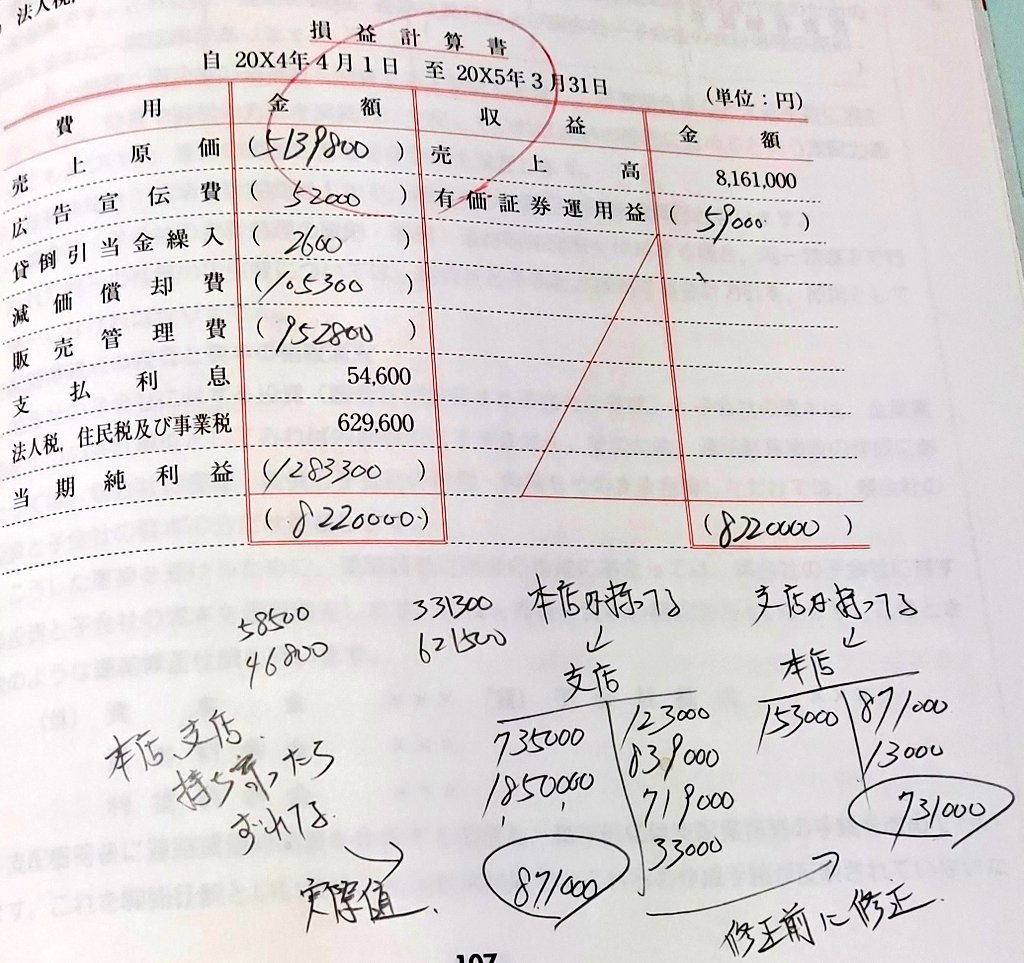 法人税,
損益計算書
自 20X4年4月1日 至 20X5年3月31日
(単位:円)
費用 金額 収益 金額
売上原価 (5139800) 売上高 8,161,000
広告宣伝費 (52000) 有価証券運用益 (59000)
貸倒引当金繰入 (2600)
減価償却費 (105300)
販売管理費 (952800)
支払利息 54,600
法人税,住民税及び事業税 629,600
当期純利益 (1283300)
(8220000) (8220000)
58500
46800
331300
621500
本店が持ってる
支店
735000 123000
1850000 839000
719000
33000
871000
支店が持ってる
本店
153000 871000
13000
731000
本店、支店、
持ち寄ったら
ずれてる
実際値
修正前に修正
107